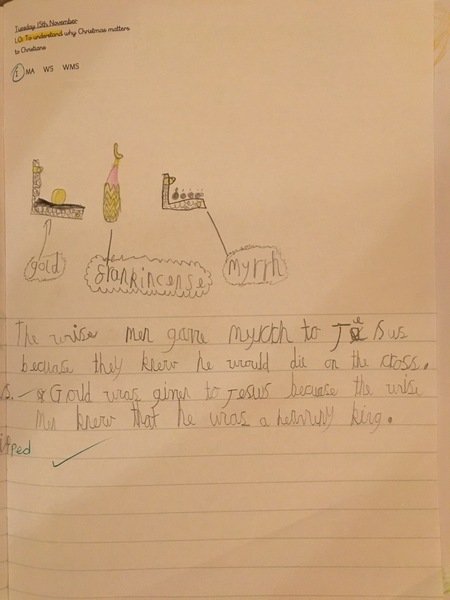 Tuesday 15th November
LO: To understand why Christmas matters
to Christians
I MA WS WMS
gold
frankincense
myrrh
The wise men gave myrrh to Jesus
becuase they knew he would die on the cross.
s. - Gold was given to Jesus becuase the wise
men knew that he was a hevenly king.
ped